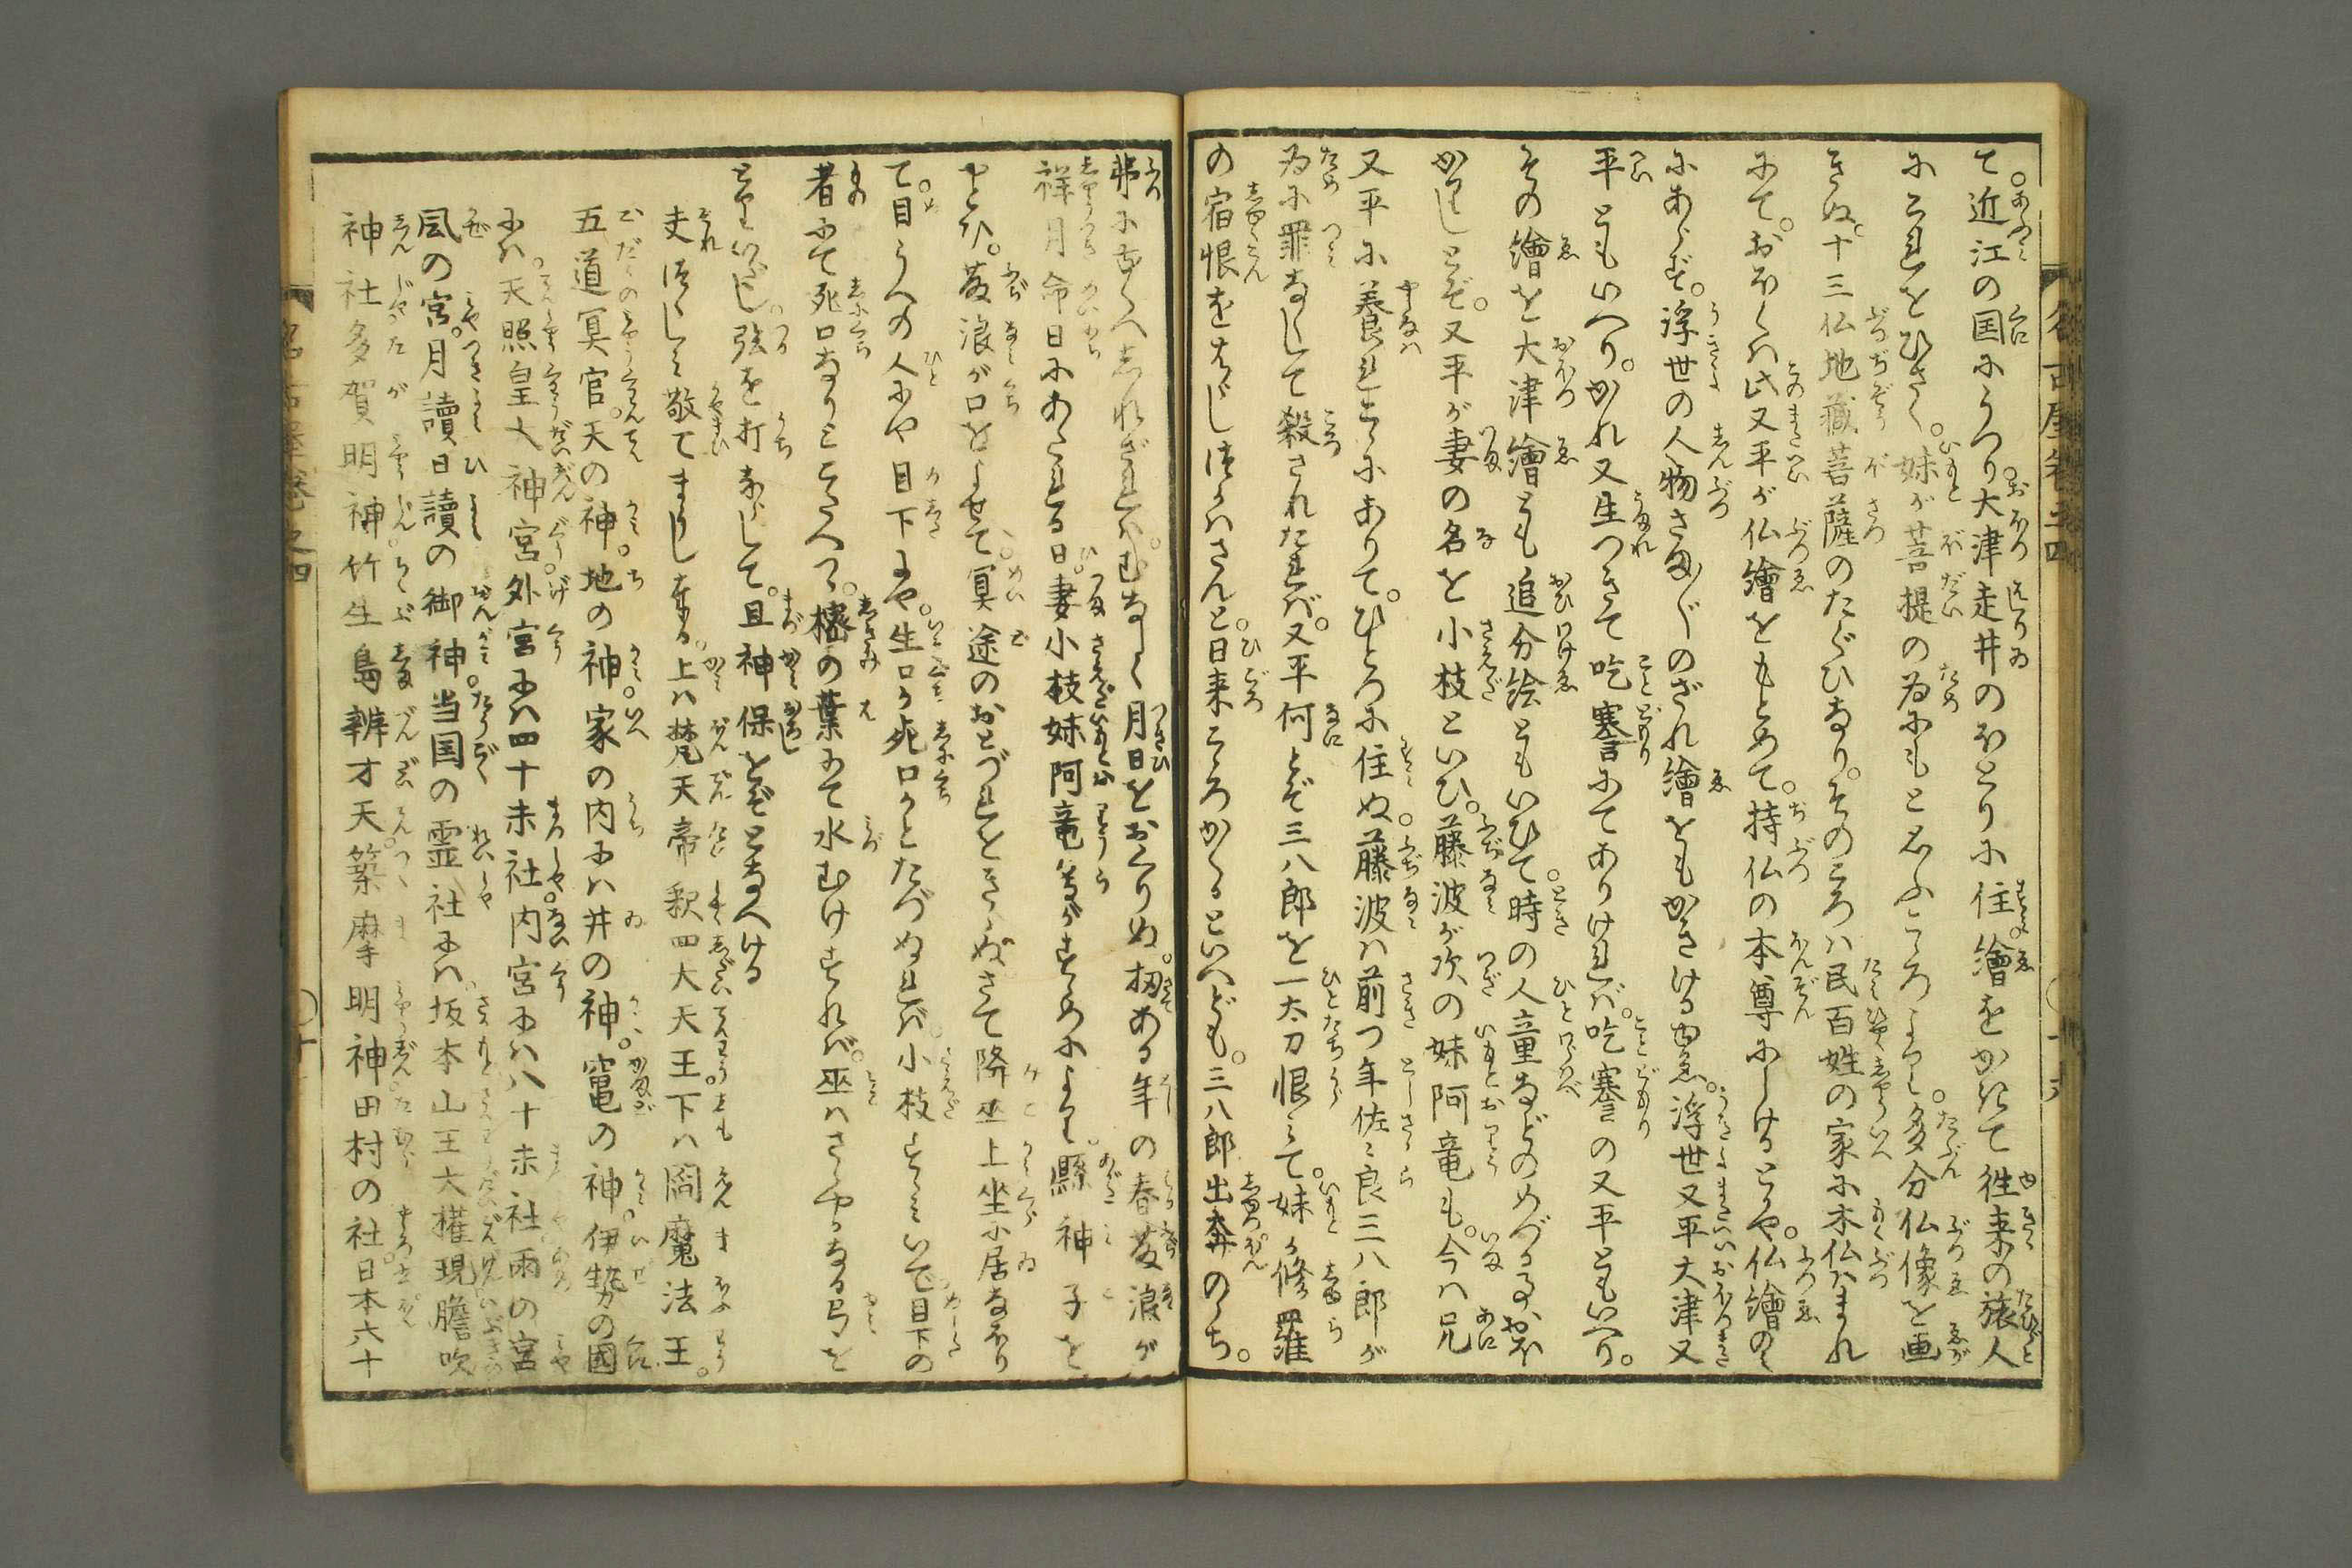 て。近江の国にうつり。大津走井のほとりに住。繪をかきて徃来の旅人
にこれをひさく。妹が菩提の為にもと思ふこゝろより。多分仏像を画
きぬ。十三仏地蔵菩薩のたぐひなり。そのころハ民百姓の家に木仏ハまれ
にて。おほくハ此又平が仏繪をもとめて。持仏の本尊にしけるとかや。仏繪のミ
にあらず。浮世の人物さま〴〵のざれ繪をもかきけるゆゑ。浮世又平大津又
平ともいへり。かれ又生つきて吃謇にてありけれバ。吃謇の又平ともいへり。
その繪を大津繪とも追分絵ともいひて。時の人童などのめづる事おほ
かりしとぞ。又平が妻の名を小枝といひ。藤波が次の妹阿竜も。今ハ兄
又平に養れこゝにありて。ひとつに住ぬ。藤波ハ前つ年佐〻良三八郎が
為に罪なくして殺されたれバ。又平何とぞ三八郎を一太刀恨ミて。妹が修羅
の宿恨をはらし得させんと。日来こゝろがくるといへども。三八郎出奔のゝち。
弗に行へしれざれハ。むなしく月日をおくりぬ。扨ある年の春藤浪が
祥月命日にあたれる日。妻小枝妹阿竜等がすゝめによりて。縣神子を
やとひ。藤浪が口をよせて。冥途のおとづれをきゝぬ。さて降巫上坐に居なほり
て。目うへの人にや目下にや。生口か死口かとたづぬれバ。小枝すゝミいで。目下の
者にて死口なりとこたへつゝ。樒の葉にて水むけすれバ。巫ハさゝやかなる弓を
とりいだし。弦を打ならして。且神保をぞとなへける
夫つゝしミ敬てまうし奉る。上ハ梵天帝釈四大天王。下ハ閻魔法王。
五道冥官。天の神。地の神。家の内にハ井の神。竈の神。伊勢の國
にハ。天照皇大神宮。外宮にハ四十末社。内宮にハ八十末社。雨の宮
風の宮。月讀日讀の御神。当国の霊社にハ。坂本山王大権現。膽吹
神社。多賀明神。竹生島辨才天。築摩明神。田村の社。日本六十